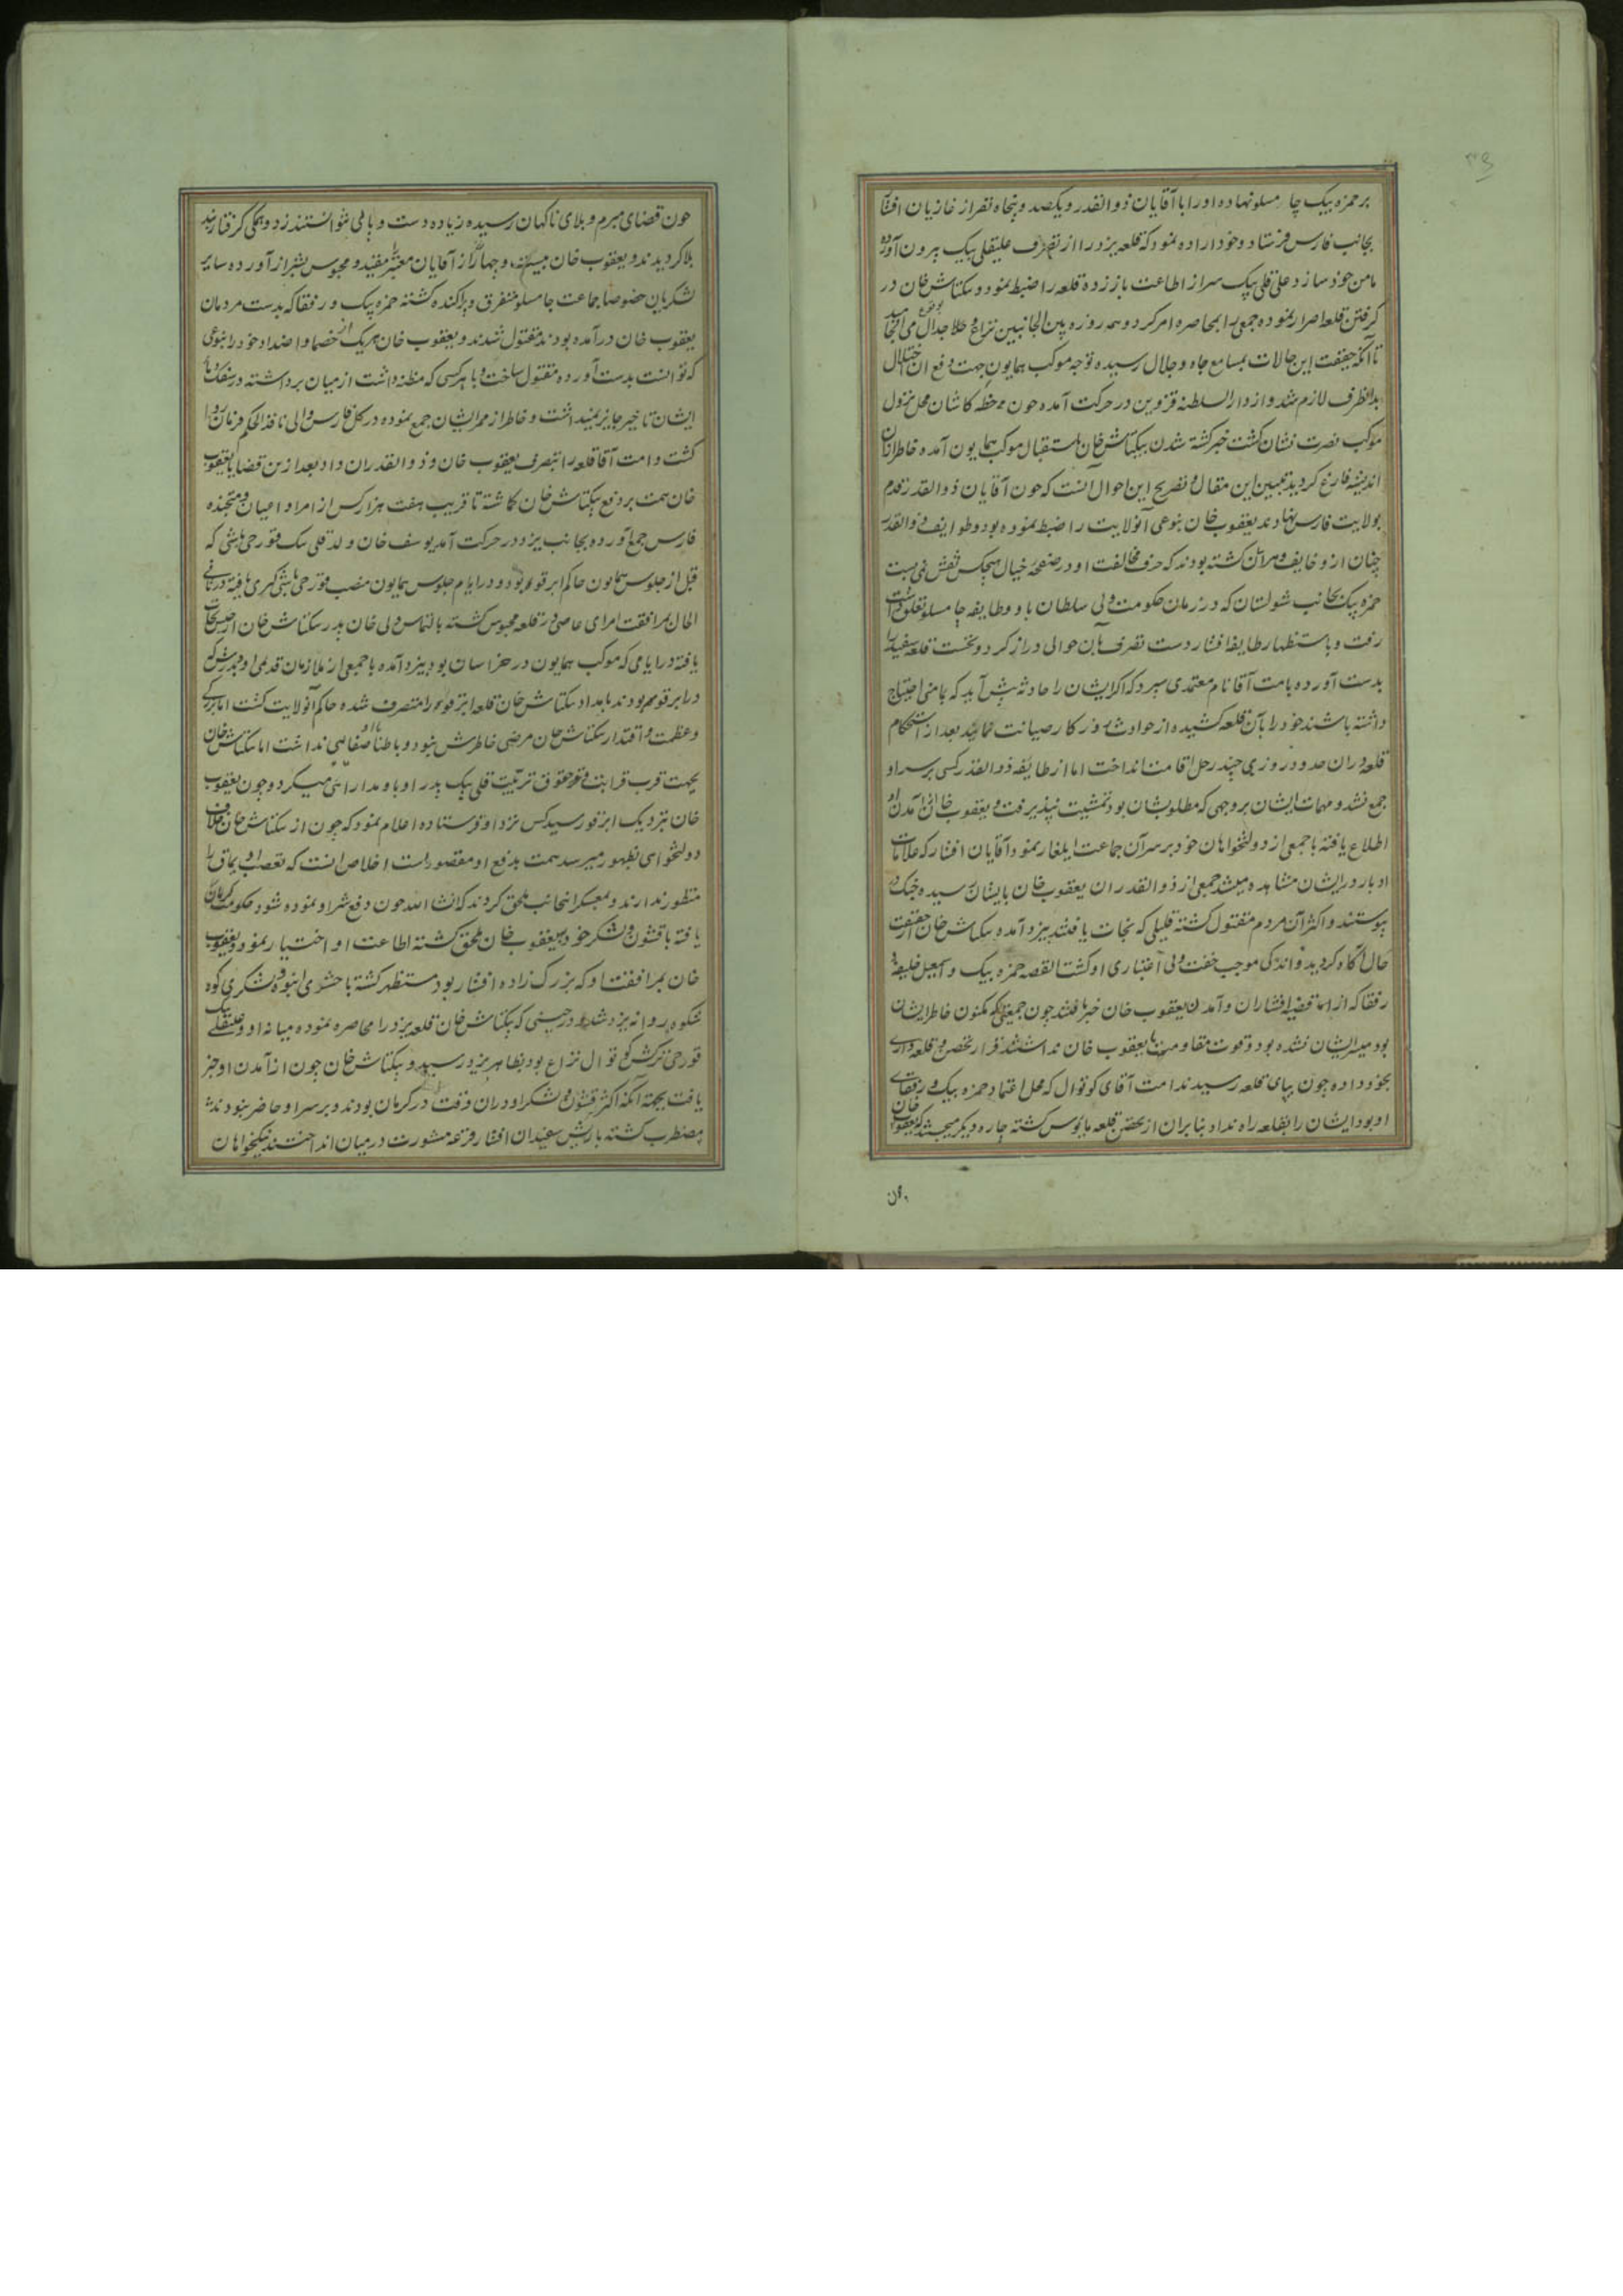 بر حمزه بیک جا مسلو نهاده او را با آقایان ذوالقدر و یکصد و پنجاه نفر از غازیان افشار
بجانب فارس فرستاد و خود اراده نمود که قلعه یزد را از تصرف علیقلی بیک بیرون آورده
مامن خود سازد علی قلی بیک سر از اطاعت باز زده قلعه را ضبط نمود و بکتاش خان در
گرفتن قلعه اصرار نموده جمعی را بمحاصره امر کرد و همه روزه بین الجانبین نزاع و جدال می انجامید
تا آنکه حقیقت این حالات بمسامع جاه و جلال رسیده توجه موکب همایون جهت دفع ان اختلال
بدانطرف لازم شد و از دار السلطنه قزوین در حرکت آمده چون خطه کاشان محل نزول
موکب نصرت نشان گشت خبر کشته شدن بیکتاش خان باستقبال موکب همایون آمده خاطر ازان
اندیشه فارغ گردید تبیین این مقال و تصریح این احوال انست که چون آقایان ذوالقدر قدم
بولایت فارس نهادند یعقوب خان بنوعی آنولایت را ضبط نموده بود و طوایف ذوالقدر
چنان ازو خایف و هراسان گشته بودند که حرف مخالفت او در صفحه خیال هیچکس نقش نمی بست
حمزه بیک بجانب شولستان که در زمان حکومت ولی سلطان باو و طایفه جا مسلو تعلق داشت
رفت و باستظهار طایفه افشار دست تصرف بان حوالی دراز کرد و نخست قلعه سفید را
بدست آورده بامت آقا نام معتمدی سپرد که اگر ایشان را حادثه پیش آید که بامنی احتیاج
داشته باشند خود را بآن قلعه کشیده از حوادث روزکار صیانت نمایند بعد از استحکام
قلعه دران حدود روزی چند رحل اقامت انداخت اما از طایفه ذوالقدر کسی بر سر او
جمع نشد و مهمات ایشان بروجهی که مطلوبشان بود تمشیت نپذیرفت و یعقوب خان از آمدن او
اطلاع یافته با جمعی از دولتخواهان خود بر سر آن جماعت ایلغار نمود آقایان افشار که علامات
ادبار در ایشان مشاهده میشد جمعی از ذوالقدران یعقوب خان بایشان رسیده جنگ در
پیوستند و اکثر آن مردم مقتول گشته قلیلی که نجات یافتند بیزد آمده بکتاش خان از حقیقت
حال آگاه گردید و اندکی موجب خفت و بی اعتباری او گشت القصه حمزه بیک و اسمعیل خلیفه و
رفقا که از قضیه افشاران و آمدن یعقوب خان خبر یافتند چون جمعیتی که مکنون خاطر ایشان
بود میسر ایشان نشده بود و قوت مقاومت با یعقوب خان نداشتند قرار تحصن و قلعه داری
بخود داده چون بپای قلعه رسیدند امت آقای کوتوال که محل اعتماد حمزه بیک و رفقای
او بود ایشان را بقلعه راه نداد بنابران از تحصن قلعه مایوس گشته چاره دیگر میجستند که یعقوب خان
چون
چون قضای مبرم و بلای ناگهان رسیده زیاده دست و پائی نتوانستند زد و همگی گرفتار بند
بلا گردیدند و یعقوب خان و چهار از آقایان معتبر را مقید و محبوس بشیراز آورده سایر
لشکریان خصوصا جماعت جا مسلو متفرق و پراکنده گشته حمزه بیک و رفقا که بدست مردمان
یعقوب خان درآمده بودند مقتول شدند و یعقوب خان هریک از خصما و اضداد خود را بنوعی
که توانست بدست آورده مقتول ساخت و با هر کسی که مظنه داشت از میان برداشته در سفک دماء
ایشان تاخیر جایز نمیداشت و خاطر از ممر ایشان جمع نموده در کل فارس والی نافذ الحکم فرمان روا
گشت و امت آقا قلعه را بتصرف یعقوب خان و ذوالقدران داد بعد ازین قضایا یعقوب
خان همت بر دفع بیکتاش خان گماشته تا قریب هفت هزار کس از امرا و اعیان و جنده
فارس جمع آورده بجانب یزد در حرکت آمد یوسف خان ولد قلی بیک قورچی باشی که
قبل از جلوس همایون حاکم ابرقوه بود و در ایام جلوس همایون منصب قورچی باشی گری یافته در ثانی
الحال بمرافقت امرای عاصی در قلعه محبوس گشته بالتماس ولی خان پدر بکتاش خان از حبس نجات
یافته در ایامی که موکب همایون در خراسان بود بیزد آمده با جمعی از ملازمان قدیمی او و پدرش که
در ابرقوه بودند بامداد بکتاش خان قلعه ابرقوه را متصرف شده حاکم آنولایت گشت اما بزرگی
و عظمت و اقتدار بکتاش خان مرضی خاطرش نبود و باطنا با او صفائی نداشت اما بکتاش خان
بجهت قرب قرابت و حقوق تربیت قلی بیک پدر او باو مدارائی میکرد و چون یعقوب
خان بنزدیک ابرقوه رسید کس نزد او فرستاده اعلام نمود که چون از بکتاش خان خلاف
دولتخواهی بظهور میرسد همت بدفع او مقصور است اخلاص انست که تعصب اویماق را
منظور ندارند و بمعسکر اینجانب ملحق گردند که انشا الله چون دفع شر او نموده شود حکومت کرمان
یافته با قشون و لشکر خود بیعقوب خان ملحق گشته اطاعت او اختیار نمود و یعقوب
خان بمرافقت او که بزرگ زاده افشار بود مستظهر گشته با حشری انبوه و لشکری کوه
شکوه روانه یزد شد در حینی که بیکتاش خان قلعه یزد را محاصره نموده میانه او و علیقلی بیک
قورچی ترکش کوتوال نزاع بود بظاهر یزد رسید و بیکتاش خان چون از آمدن او خبر
یافت بجهة آنکه اکثر قشون و لشکر او دران وقت در کرمان بودند و بر سر او حاضر نبودند
مضطرب گشته با ریش سفیدان افشار قرعه مشورت در میان انداختند نیکخواهان